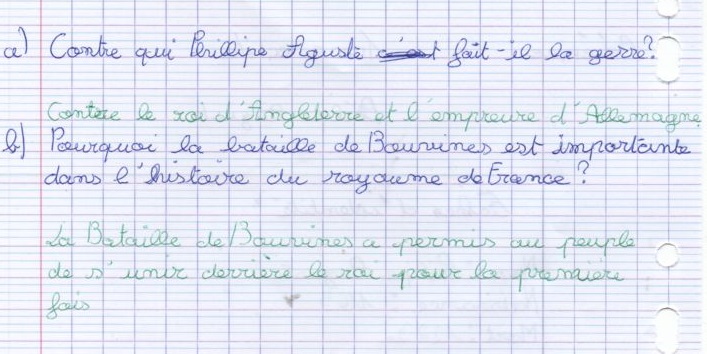 a) Contre qui Phillipe Aguste fait-il la gerre?
Contre le roi d'Angleterre et l'empreure d'Allemagne
b) Pourquoi la bataille de Bouvines est importante
dans l'histoire du royaume de France ?
La Bataille de Bouvines a permis au peuple
de s'unir derrière le roi pour la première
fois